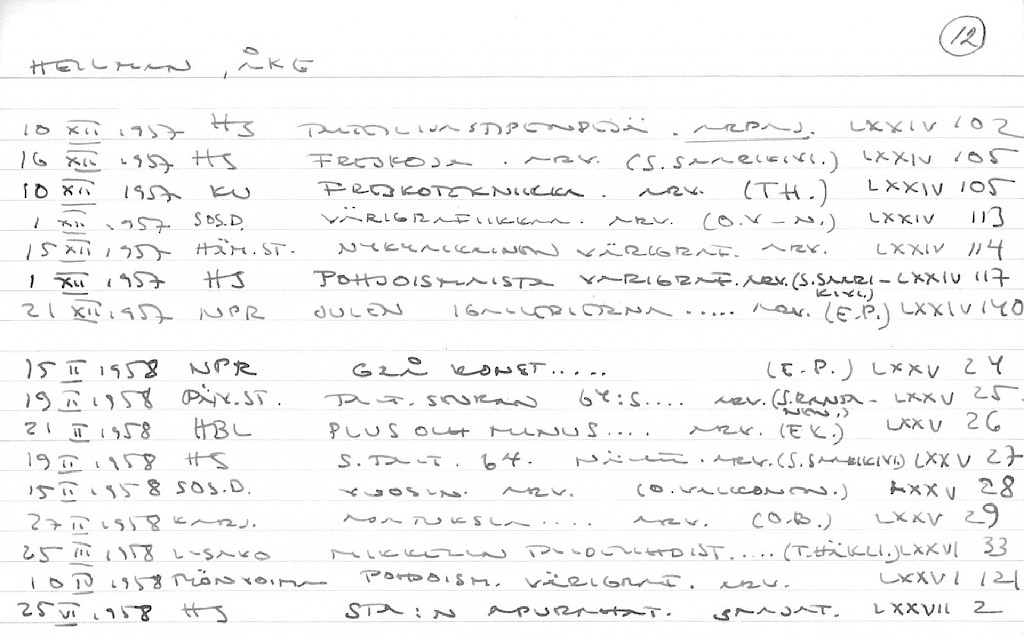 12
HELLMAN, ÅKE
10 XII 1957 HS TAITEILIJASTIPENDEJÄ. ARPAJ. LXXIV 102
16 XII 1957 HS FRESKOJA. ARV. (S. SAARIKIVI.) LXXIV 105
10 XII 1957 KU FRESKOTEKNIIKKA. ARV. (TH.) LXXIV 105
1 XII 1957 SOS.D. VÄRIGRAFIIKKAA. ARV. (O.V-N.) LXXIV 113
15 XII 1957 HÄM.ST. NYKYAIKAINEN VÄRIGRAF. ARV. LXXIV 114
1 XII 1957 HS POHJOISMAISTA VÄRIGRAF. ARV. (S.SAARI- LXXIV 117
KIVI.)
21 XII 1957 NPR JULEN I GALLERIERNA..... ARV. (E.P.) LXXIV 140
15 II 1958 NPR GRÅ KONST..... (E.P.) LXXV 24
19 II 1958 PÄIV.ST. TAIT. SEURAN 64:S.... ARV. (S.RANTA- LXXV 25.
NEN.)
21 II 1958 HBL PLUS OCH MINUS.... ARV. (EK.) LXXV 26
19 II 1958 HS S.TAIT. 64. NÄYTT. ARV. (S.SAARIKIVI) LXXV 27
15 II 1958 SOS.D. VUOSIN. ARV. (O.VALKONEN.) LXXV 28
27 II 1958 KARJ. .... ARV. (O.B.) LXXV 29
25 III 1958 L-SAVO MIKKELIN TAIDEYHDIST..... (T.HÄKLI.) LXXVI 33
10 IV 1958 POHJOISM. VÄRIGRAF. ARV. LXXVI 121
25 VI 1958 HS STA:N APURAHAT. SAAJAT. LXXVII 2